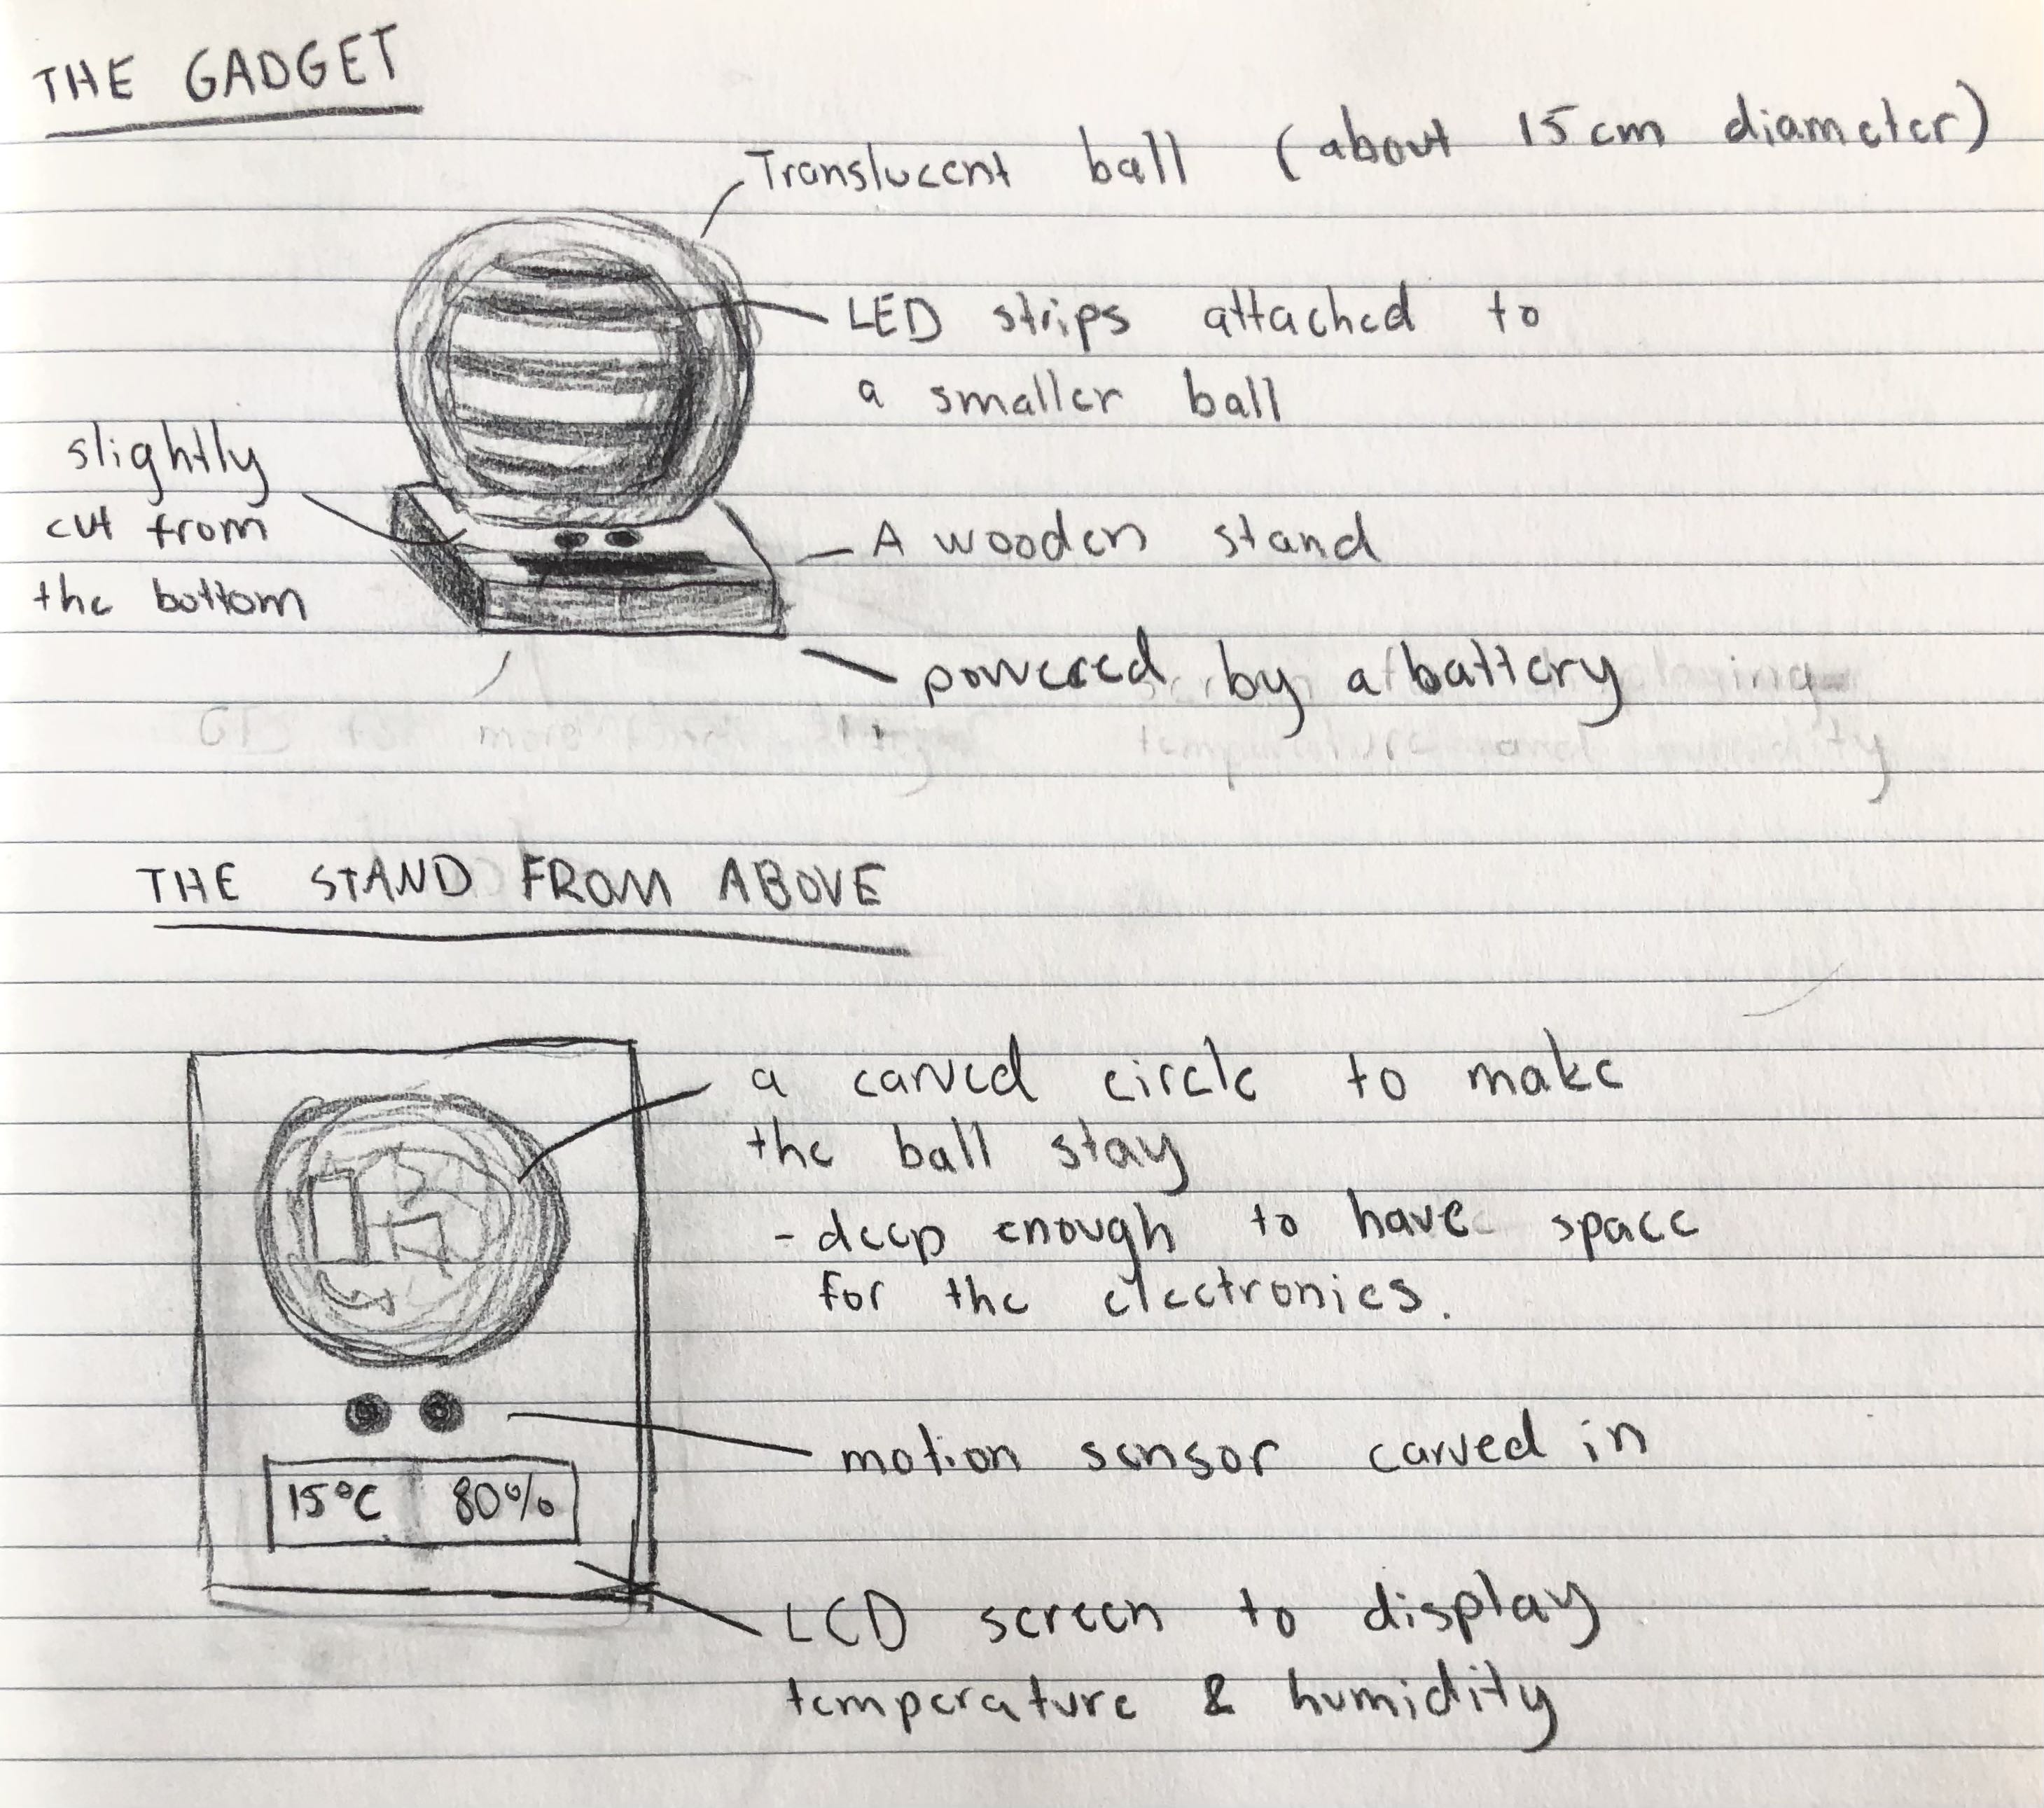 THE GADGET
Translucent ball (about 15cm diameter)
LED strips attached to
a smaller ball
slightly
cut from
the bottom
A wooden stand
powered by a battery
temperature and humidity
THE STAND FROM ABOVE
a carved circle to make
the ball stay
- deep enough to have space
for the electronics.
motion sensor carved in
15°C 80%
LCD screen to display
temperature & humidity